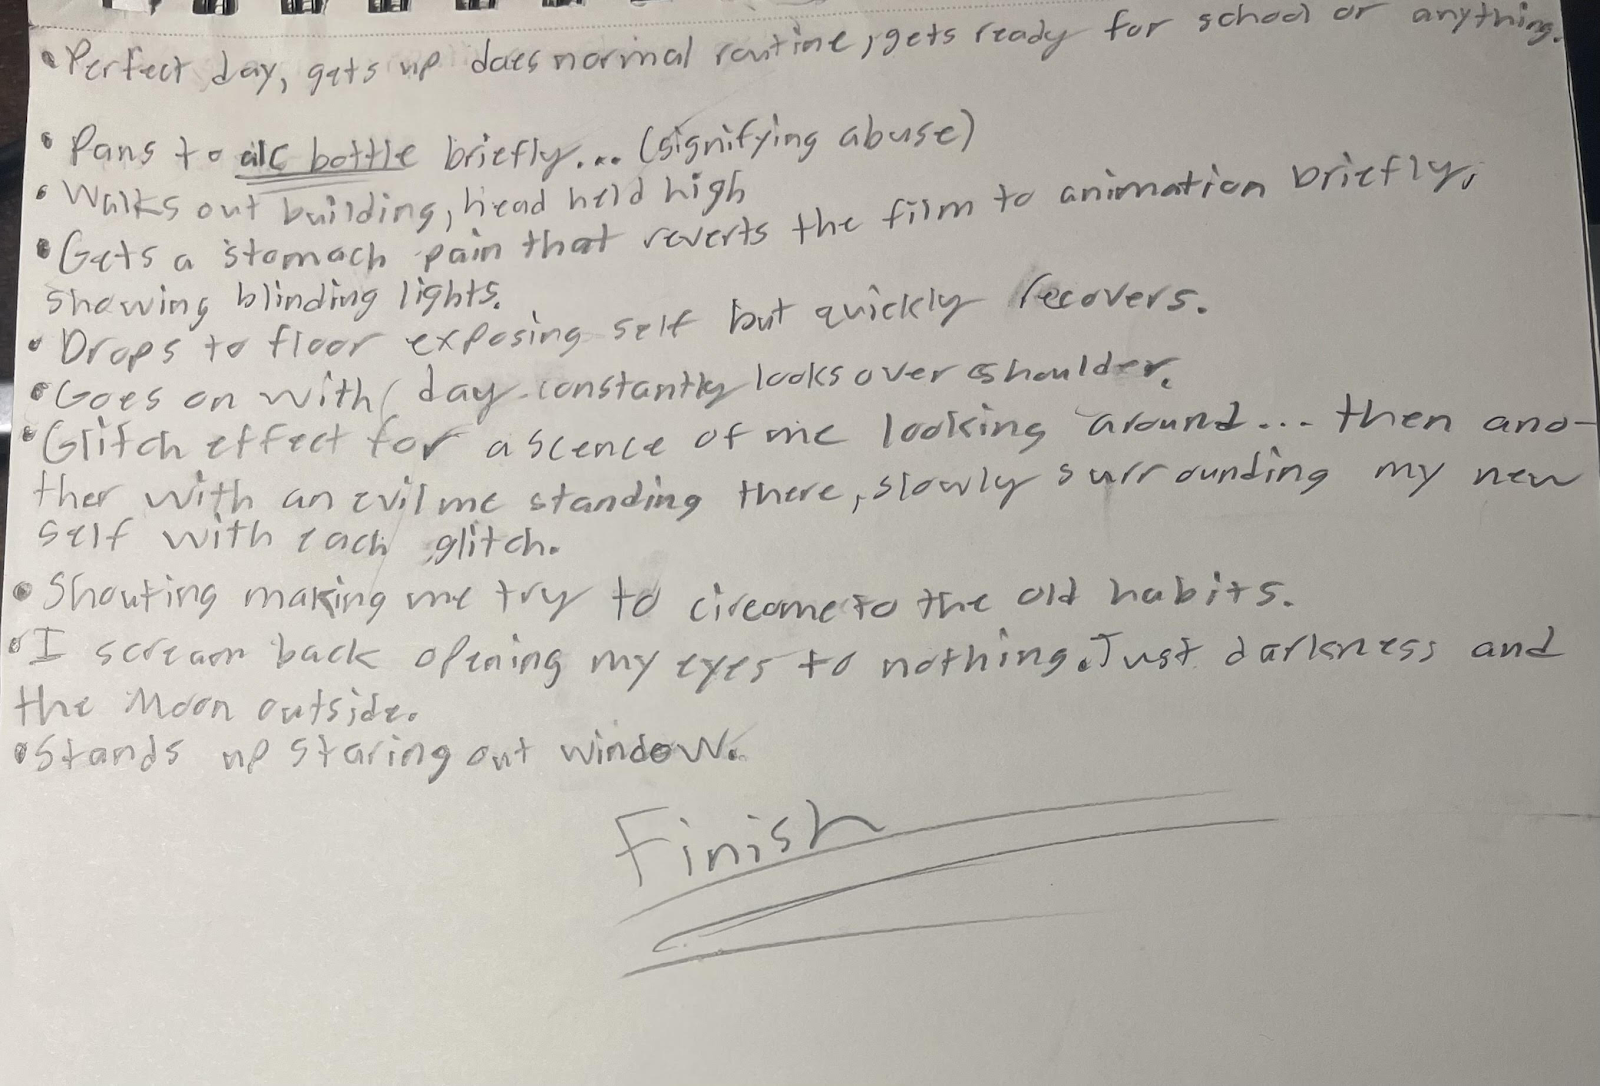 • Perfect day, gets up does normal routine, gets ready for school or anything.
• Pans to alc bottle briefly... (signifying abuse)
• Walks out building, head held high
• Gets a stomach pain that reverts the film to animation briefly,
showing blinding lights.
• Drops to floor exposing self but quickly recovers.
• Goes on with day constantly looks over shoulder.
• Glitch effect for a scence of me looking around... then ano-
ther with an evil me standing there, slowly surrounding my new
self with each glitch.
• Shouting making me try to circome to the old habits.
• I scream back opening my eyes to nothing. Just darkness and
the Moon outside.
• Stands up staring out window.
Finish